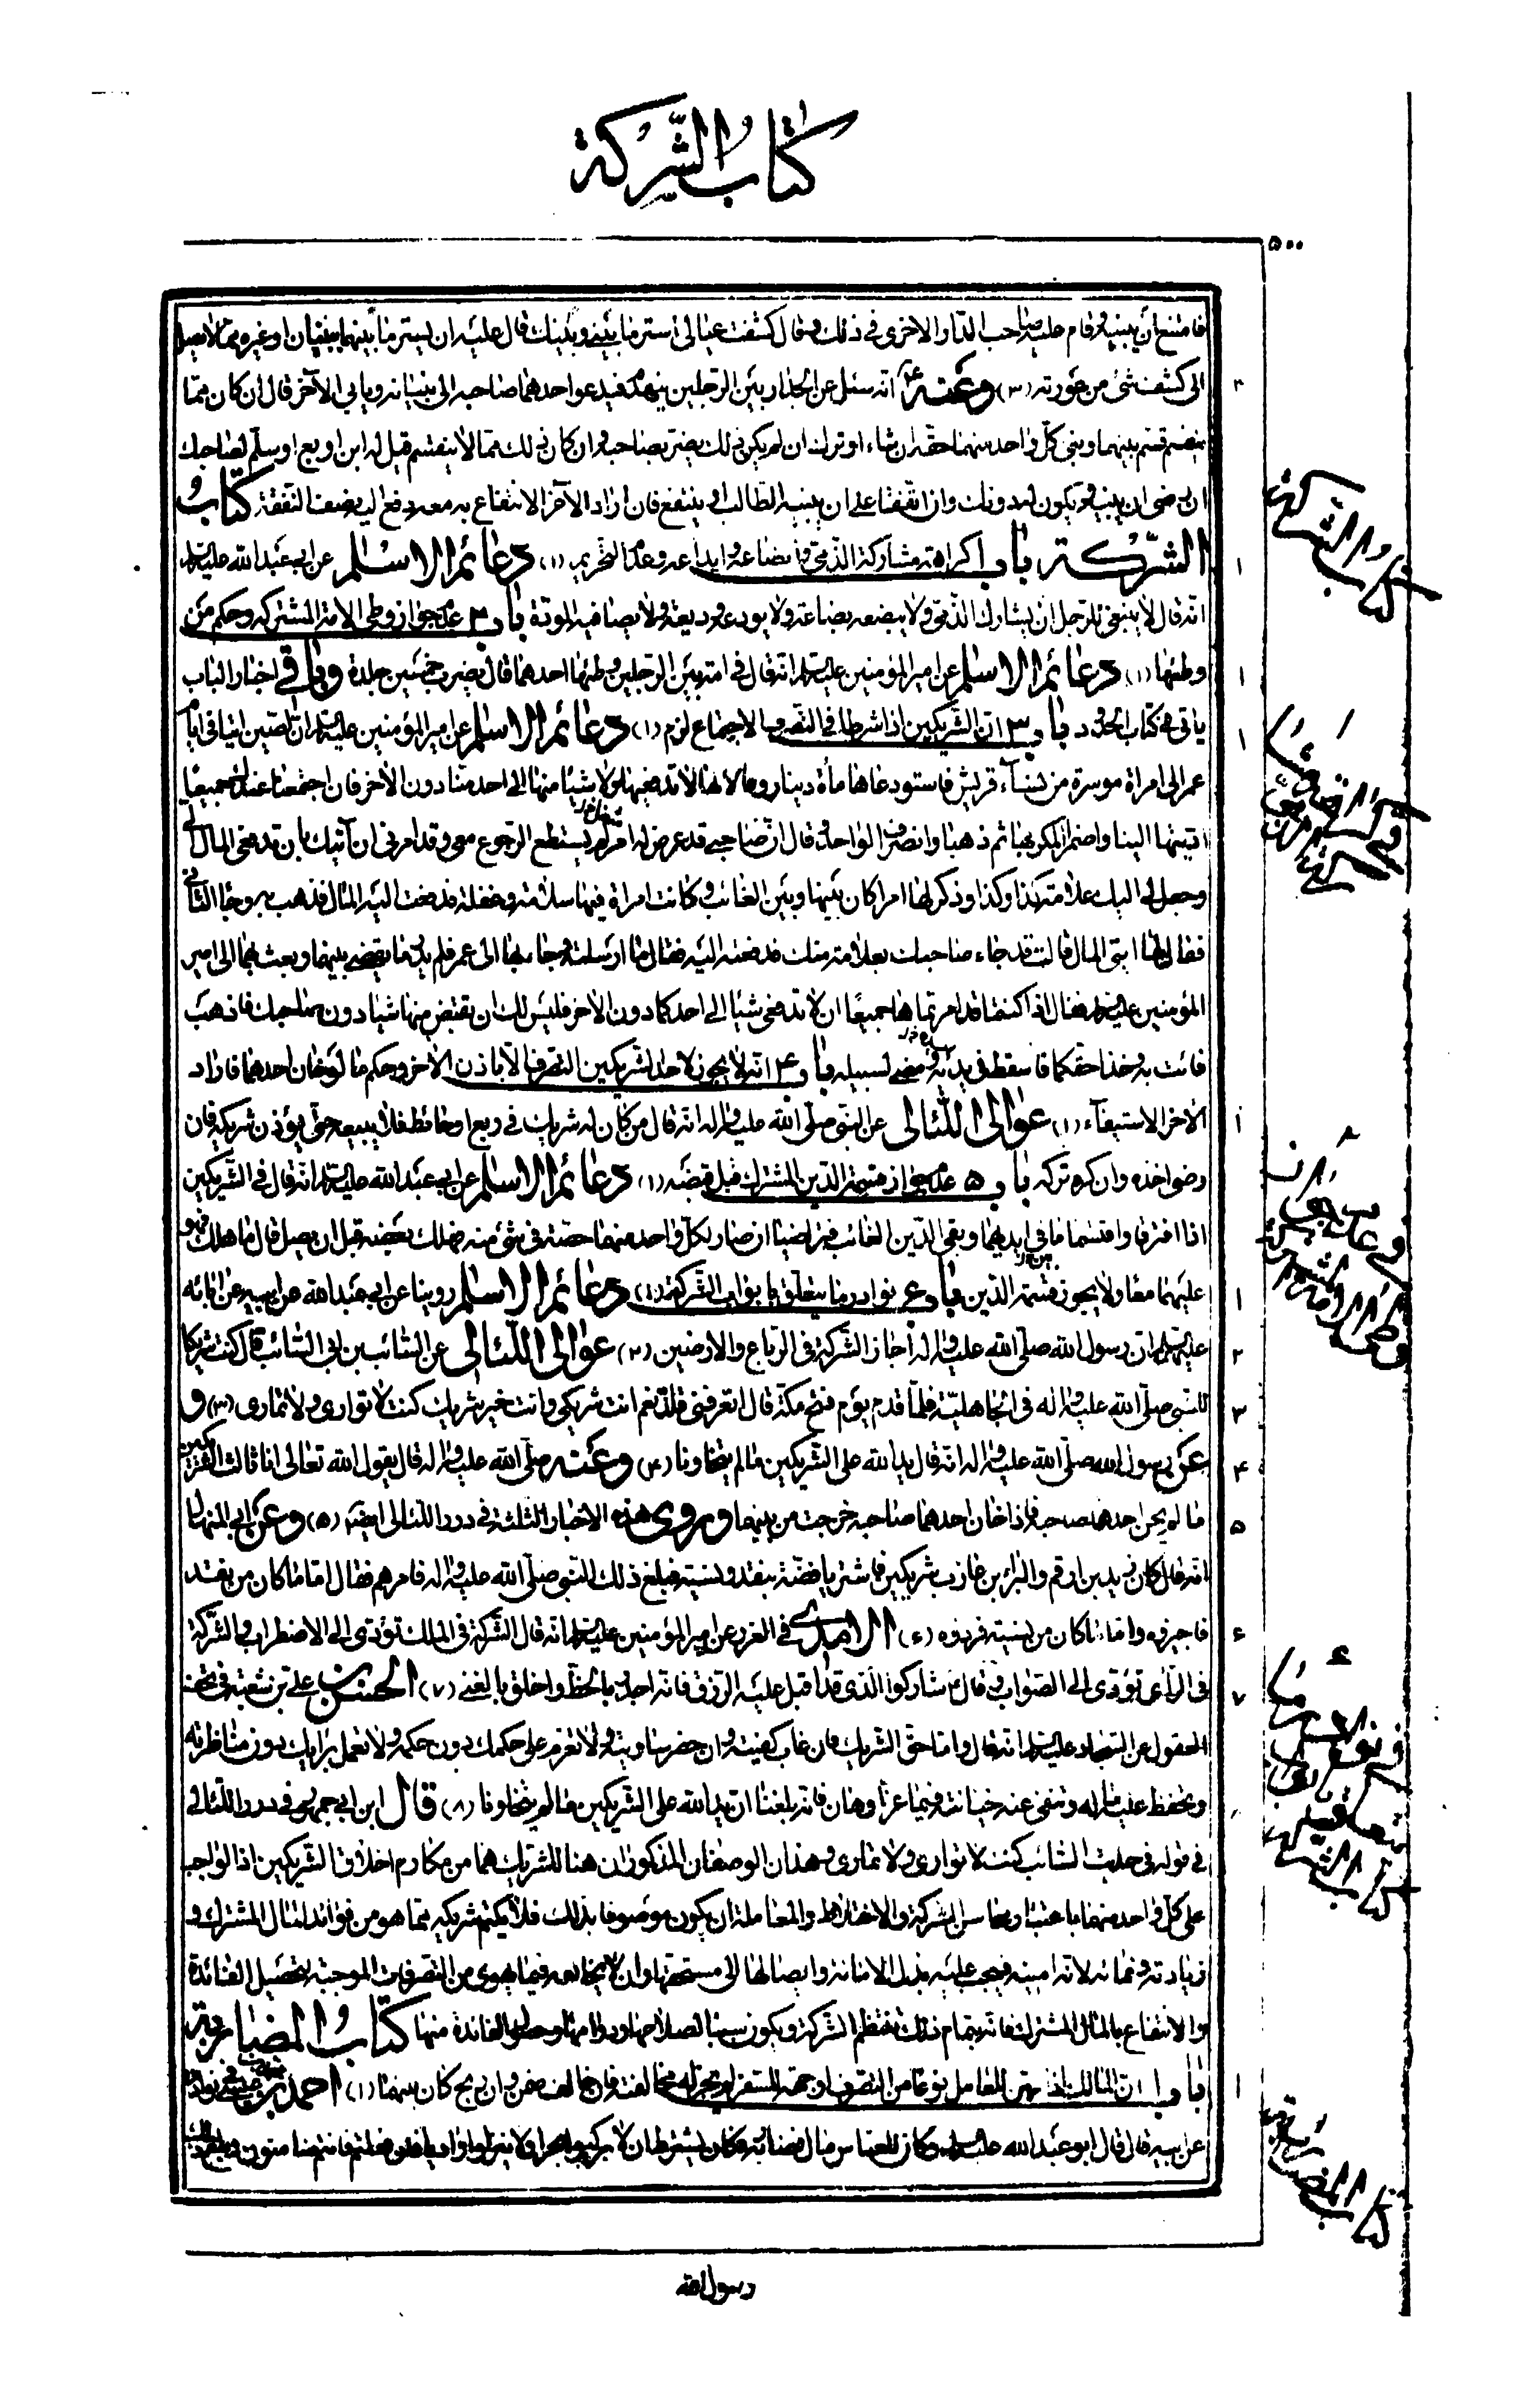 كتاب الشركة
٥٠٠
فامتنع أن يبنيه وقام عليه صاحب الدار الأخرى في ذلك وقال كشفت عيالي استر ما بيني وبينك قال عليه ان يستر ما بينهما ببنيان او غيره مما لا يصل
الى كشف شئ من عورته (٣) وعنه ع انه سئل عن الجدار بين الرجلين ينهدم فيدعو احدهما صاحبه الى بنيانه ويابى الآخر قال ان كان مما
ينقسم قسم بينهما وبنى كل واحد منهما حقه ان شاء او ترك ان لم يكن ذلك يضر بصاحبه وان كان ذلك مما لا ينقسم قيل له ابن او بع او سلم لصاحبك
ان رضى ان يبنيه ويكون له دونك وان اتفقا على ان يبنيه الطالب او ينتفع فان اراد الآخر الانتفاع به معه دفع اليه نصف النفقة كتاب
الشركة باب ١ كراهة مشاركة الذمي وابضاعه وايداعه وعدم التحريم (١) دعائم الاسلام عن ابي عبد الله عليه السلام
انه قال لا ينبغي للرجل ان يشارك الذمي ولا يبضعه بضاعة ولا يودعه وديعة ولا يصافيه المودة باب ٢ عدم جواز وطى الامة المشتركة وحكم من
وطئها (١) دعائم الاسلام عن امير المؤمنين عليه السلام انه قال في امة بين الرجلين وطئها احدهما قال يضرب خمسين جلدة وباقي اخبار الباب
ياتي في كتاب الحدود باب ٣ ان الشريكين اذا شرطا في التصرف الاجتماع لزم (١) دعائم الاسلام عن امير المؤمنين عليه السلام ان لصين اتيا في ايام
عمر الى امراة موسرة من نساء قريش فاستودعاها مأة دينار وقالا لها لا تدفعيها ولا شيئا منها الى احد منا دون الآخر فان اجتمعنا عندك جميعا
اديتها الينا واضمرا المكر بها ثم ذهبا وانصرف الواحد وقال ان صاحبي قد عرض له امر لم يستطع الرجوع معي وقد امرني ان آتيك بان تدفعي المال الي
وجعل لي اليك علامة كذا وكذا وذكر لها امرا كان بينها وبين الغائب وكانت امراة فيها سلامة وغفلة فدفعت اليه المال فذهب به وجا الثاني
فقال لها ايتي المال قالت قد جاء صاحبك بعلامة منك فدفعته اليه فقال ما ارسلته وجاء بها الى عمر فلم يدر ما يقضي بينهما وبعث بهما الى امير
المؤمنين عليه السلام فقال اذا كنتما قد امرتماها جميعا ان لا تدفعي شيئا الى احد كما دون الآخر فليس لك ان تقبض منها شيئا دون صاحبك فاذهب
فائت به وخذا حقكما فاسقط في يده ومضى لسبيله باب ٤ انه لا يجوز لاحد الشريكين التصرف الا باذن الآخر وحكم ما لو خان احدهما فاراد
الآخر الاستيفاء (١) عوالي اللئالي عن النبي صلى الله عليه واله انه قال من كان له شريك في ربع او حائط فلا يبيعه حتى يؤذن شريكه فان
رضى اخذه وان كره تركه باب ٥ عدم جواز قسمة الدين المشترك قبل قبضه (١) دعائم الاسلام عن ابي عبد الله عليه السلام انه قال في الشريكين
اذا افترقا واقتسما ما في ايديهما وبقي الدين الغائب فتراضيا ان صار لكل واحد منهما حصة في شئ منه فهلك بعضه قبل ان يصل قال ما هلك فهو
عليهما معا ولا يجوز قسمة الدين باب ٦ نوادر ما يتعلق بابواب الشركة (١) دعائم الاسلام روينا عن ابي عبد الله عن ابيه عن ابائه
عليهم السلام ان رسول الله صلى الله عليه واله أجاز الشركة في الرباع والارضين (٢) عوالي اللئالي عن السائب بن ابي السائب قال كنت شريكا
للنبي صلى الله عليه واله في الجاهلية فلما قدم يوم فتح مكة قال اتعرفني قلت نعم انت شريكي وانت خير شريك كنت لا تواري ولا تماري (٣) و
عن رسول الله صلى الله عليه واله انه قال يد الله على الشريكين ما لم يتخاونا (٤) وعنه صلى الله عليه واله قال يقول الله تعالى انا ثالث الشريكين
ما لم يخن احدهما صاحبه فاذا خان احدهما صاحبه خرجت من بينهما وروى هذه الاخبار الثلثة في درر اللئالي ايضا (٥) وعن ابي المنهال
انه قال كان زيد بن ارقم والبراء بن عازب شريكين فاشتريا فضة بنقد ونسية فبلغ ذلك النبي صلى الله عليه واله فامرهم فقال اما ما كان من نقد
فاجيزوه واما ما كان من نسية فردوه (٦) الآمدي في الغرر عن امير المؤمنين عليه السلام انه قال الشركة في الملك تؤدي الى الاضطراب والشركة
في الرأي تؤدي الى الصواب وقال ع شاركوا الذي قد اقبل عليه الرزق فانه اجدر بالحظ واخلق بالغنى (٧) الحسن بن علي بن شعبة في تحف
العقول عن السجاد عليه السلام انه قال واما حق الشريك فان غاب كفيته وان حضر ساويته ولا تعزم على حكمك دون حكمه ولا تعمل برايك دون مناظرته
وتحفظ عليه ماله وتنفي عنه خيانته فيما عز أو هان فانه بلغنا ان يد الله على الشريكين ما لم يتخاونا (٨) قال ابن ابي جمهور في درر اللئالي
في قوله في حديث السائب كنت لا تواري ولا تماري وهذان الوصفان المذكوران هنا للشريك هما من مكارم اخلاق الشريكين اذ الواجب
على كل واحد منهما باعتبار محاسن الشركة والاختلاط والمعاملة ان يكون موصوفا بذلك فلا يكتم شريكه مما هو من فوائد المال المشترك و
زيادته ونمائه لانه امينه فيجب عليه بذل الامانة وايصالها الى مستحقها وان لا يخالعه فيما يهوى من التصرفات الموجبة لتحصيل الفائدة
والانتفاع بالمال المشترك فانه بتمام ذلك تنتظم الشركة ويكون سببا لصلاحها ودوامها وحصول الفائدة منها كتاب المضاربة
باب ١ ان المالك اذا عين للعامل نوعا من التصرف او جهة للسفر لم يجز له مخالفته فان خالف ضمن وان ربح كان بينهما (١) احمد بن محمد بن عيسى في نوادره
عن ابيه قال قال ابو عبد الله عليه السلام كان للعباس مال مضاربة فكان يشترط ان لا يركبوا بحرا ولا ينزلوا واديا فان فعلتم فانتم ضامنون فابلغ ذلك
رسول الله
كتاب الشركة